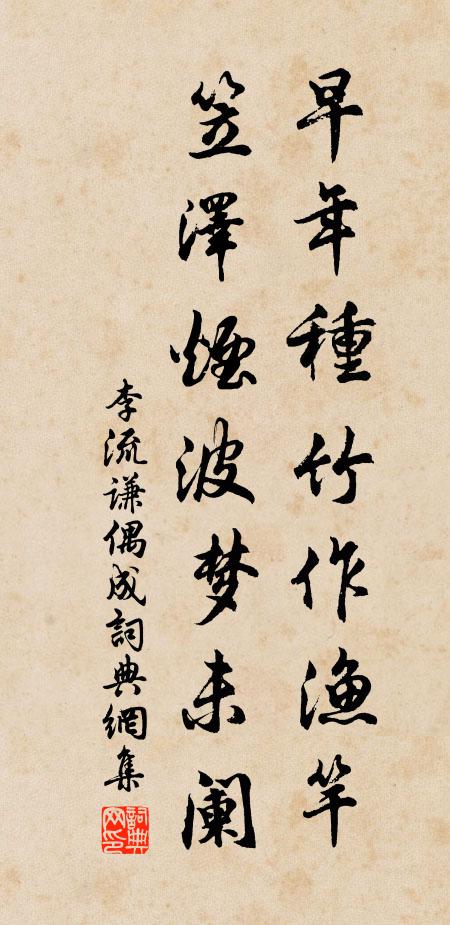 早年種竹作漁竿
笠澤煙波梦未阑
李流谦偶成詞典網集
詞典網印